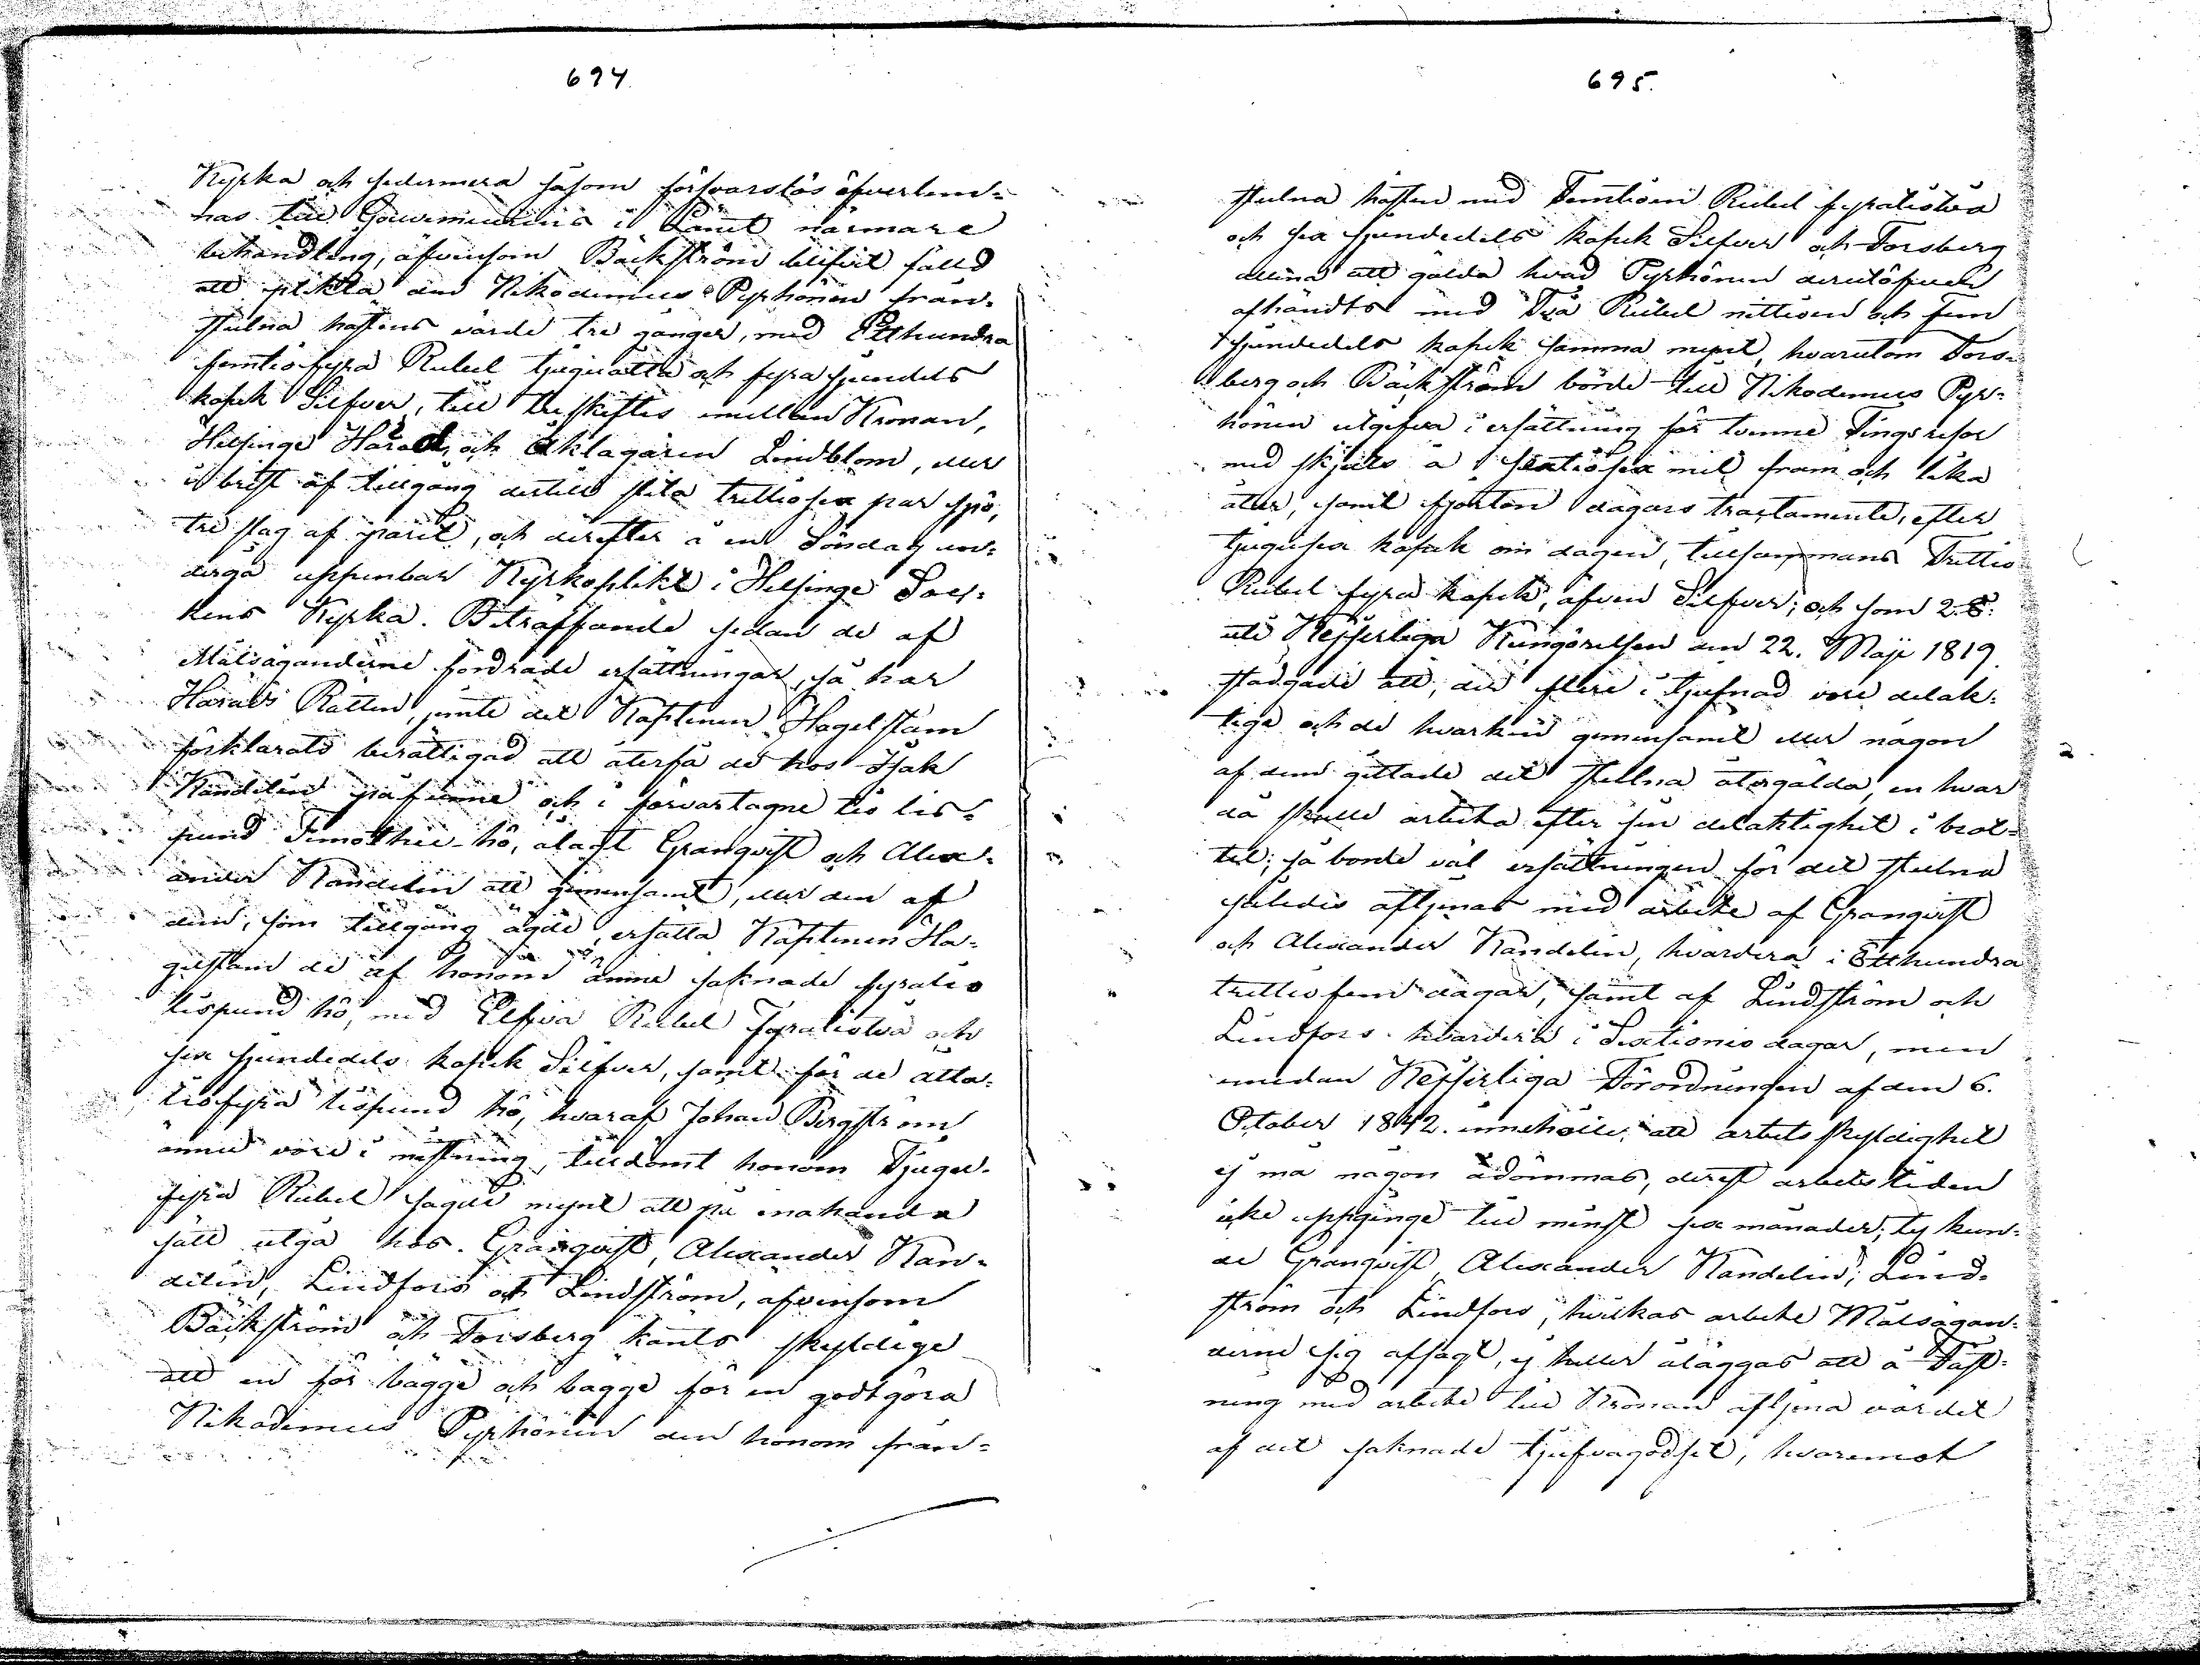 694.
Kyrka och sedermera såsom försvarslös öfverlem-
nas till Gouverneurens i Länet närmare
behandling, äfvensom Bäckström blifvit fälld
att plikta den Nikodemus Pyrhönen från-
stulna hästens värde tre gånger, med Etthundra
femtiofyra Rubel tjuguåtta och fyra sjundels
kopek Silfver, till treskiftes emellan Kronan,
Helsinge Härad, och Åklagaren Lindblom, eller
i brist af tillgång dertill slita trettiosex par spö,
tre slag af paret, och derefter å en Söndag un-
dergå uppenbar Kyrkoplikt i Helsinge Soc-
kens Kyrka. Beträffande sedan de af
Målsäganderne fordrade ersättningar, så har
Härads Rätten, jemte det Kaptenen Hagelstam
förklarats berättigad att återfå de hos Isak
Kandelin påfunne och i förvartagne tio lis-
pund Timothei-hö, ålagt Granqvist och Alex-
ander Kandelin att gemensamt, eller den af
dem, som tillgång ägde, ersätta Kaptenen Ha-
gelstam de af honom ännu saknade fyratio
lispund hö, med Elfva Rubel fyratiotvå och
sex sjundedels kopek Silfver, samt för de åtta-
tiofyra lispund hö, hvaraf Johan Bergström
ännu vore i mistning, tilldömt honom Tjugu-
fyra Rubel sagde mynt att på enahanda
sätt utgå hos Granqvist, Alexander Kan-
delin, Lindfors och Lindström, äfvensom
Bäckström och Forsberg känts skyldige
att en för bägge och bägge för en godtgöra
Nikodemus Pyrhönen den honom från-
695.
stulna hästen med Femtioen Rubel fyratiotvå
och sex sjundedels kopek Silfver och Forsberg
allena att gälda hvad Pyrhönen derutöfver
afhändts med Två Rubel nittioen och fem
sjundedels kopek samma mynt, hvarutom Fors-
berg och Bäckström börde till Nikodemus Pyr-
hönen utgifva i ersättning för tvenne Tingsresor
med skjuts å sextiosex mil fram och lika
åter, samt fjorton dagars tractamente, efter
tjugusex kopek om dagen, tillsammans Trettio
Rubel fyra kopek, äfven Silfver; och som 2. §.
uti Kejserliga Kungörelsen den 22. Maji 1819
stadgade att, der flere i tjufnad vore delak-
tige och de hvarken gemensamt eller någon
af dem gittade det stulna återgälda, en hvar
då skulle arbeta efter sin delaktighet i brot-
tet; så borde väl ersättningen för det stulna
således aftjenas med arbete af Granqvist
och Alexander Kandelin, hvardera i Etthundra
trettiofem dagar, samt af Lindström och
Lindfors hvardera i Sextionio dagar, men
emedan Kejserliga Förordningen af den 6.
October 1842. innehölle, att arbetsskyldighet
ej må någon ådömmas, derest arbetstiden
icke uppginge till minst sex månader; ty kun-
de Granqvist, Alexander Kandelin, Lind-
ström och Lindfors, hvilkas arbete Målsägan-
derne sig afsagt, ej heller åläggas att å Fäst-
ning med arbete till Kronan aftjena värdet
af det saknade tjufvagodset, hvaremot